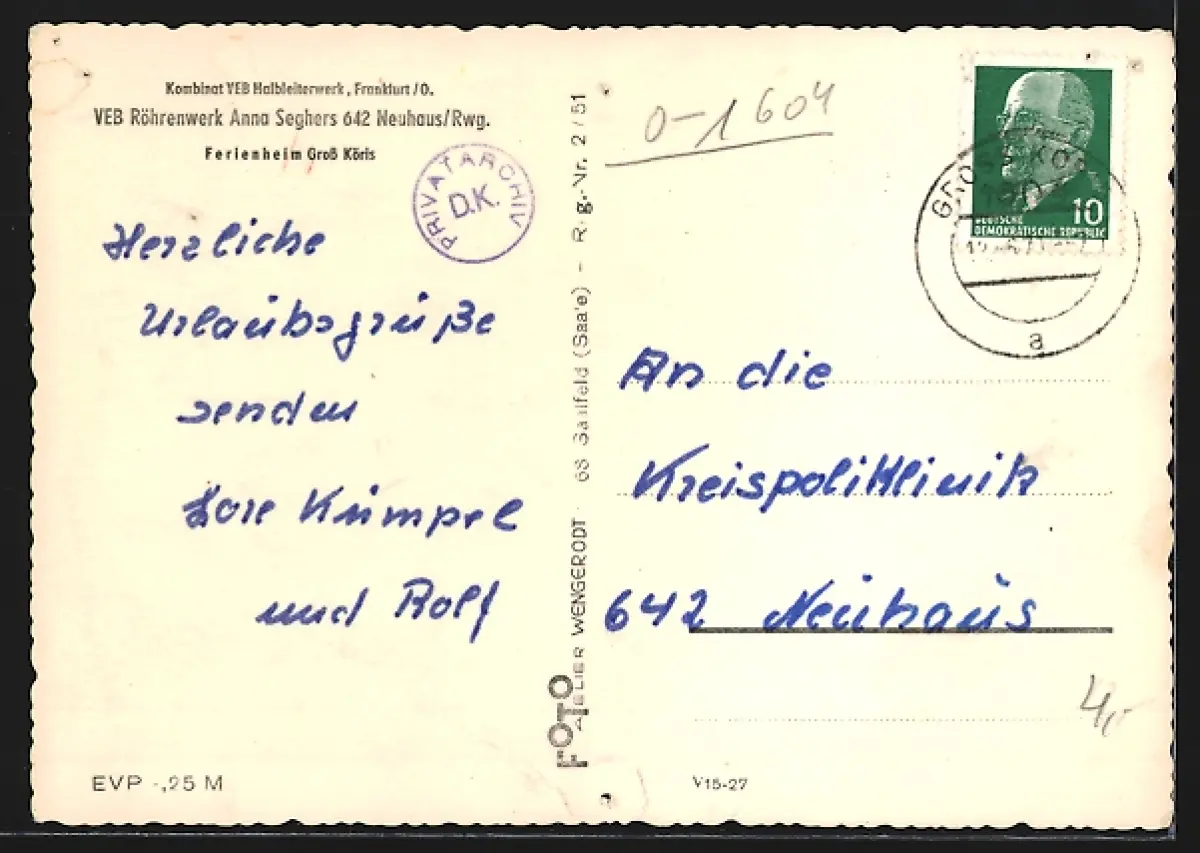 Kombinat VEB Halbleiterwerk, Frankfurt/O.
VEB Röhrenwerk Anna Seghers 642 Neuhaus/Rwg.
Ferienheim Groß Köris
PRIVATARCHIV
D.K.
Herzliche
Urlaubsgrüße
senden
Lore Kümpel
und Rolf
EVP -,25 M
FOTO
ATELIER WENGERODT 68 Saalfeld (Saale) - Reg.-Nr. 2/51
0-1604
10
DEUTSCHE
DEMOKRATISCHE REPUBLIK
GROSS KÖ
a
An die
Kreispoliklinik
642 Neuhaus
4,-
V15-27